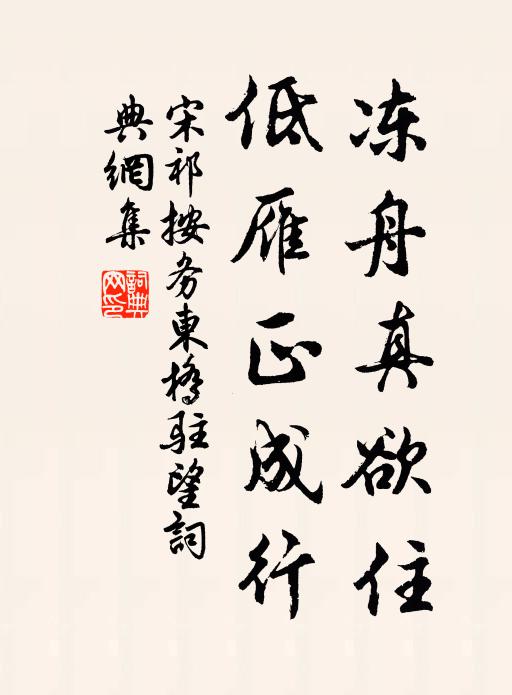 冻舟真欲住
低雁正成行
宋祁按务東橋駐望詞
典網集
詞典
网印